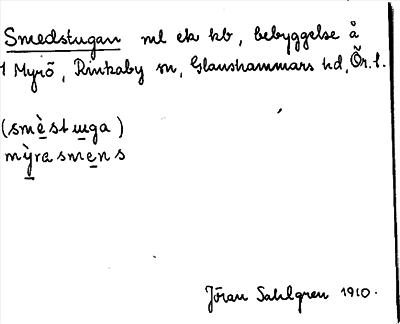 Smedstugan ml ek kb, bebyggelse å
1 Myrö, Rinkaby sn, Glanshammars hd, Ör. l.
(smè̱stu̱ga)
mỳ̱rasme̱ns
Jöran Sahlgren 1910.